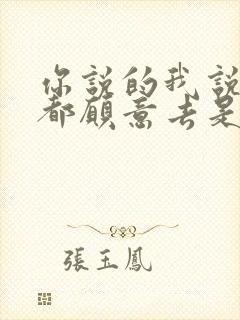 你說的我說
都願意去是
張玉鳳